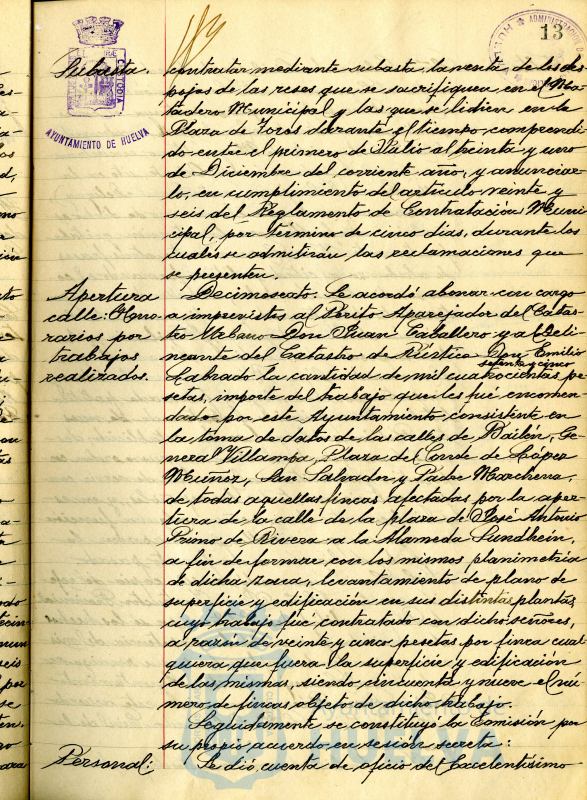 13
AYUNTAMIENTO DE HUELVA
CUSTODIA
Subasta.
contratar mediante subasta la venta de los des-
pojos de las reses que se sacrifiquen en el Ma-
tadero Municipal y las que se lidien en la
Plaza de toros durante el tiempo comprendi-
do entre el primero de Julio al treinta y uno
de Diciembre del corriente año, y anunciar-
lo, en cumplimiento del artículo veinte y
seis del Reglamento de Contratación Muni-
cipal, por término de cinco días, durante los
cuales se admitirán las reclamaciones que
se presenten.
Apertura
calle: Hono-
rarios por
trabajos
realizados.
Decimosexto. Se acordó abonar con cargo
a imprevistos al Périto Aparejador del Catas-
tro Urbano Don Juan Caballero y al Deli-
neante del Catastro de Rústica Don Emilio
setenta y cinco
Labrado la cantidad de mil cuatrocientas pe-
setas, importe del trabajo que les fué encomen-
dado por este Ayuntamiento, consistente en
la toma de datos de las calles de Bailén, Ge-
neral Villampa, Plaza del Conde de López
Muñoz, San Salvador y Padre Marchena,
de todas aquellas fincas afectadas por la aper-
tura de la calle de la plaza de José Antonio
Primo de Rivera a la Alameda Sundhein,
a fin de formar con los mismos planimetria
de dicha zona, levantamiento de plano de
superficie y edificación en sus distintas plantas,
cuyo trabajo fue contratado con dichos señores,
a razón de veinte y cinco pesetas por finca cual-
quiera que fuera la superficie y edificación
de las mismas, siendo cincuenta y nueve el nú-
mero de fincas objeto de dicho trabajo.
Seguidamente se constituyó la Comisión por
su propio acuerdo en sesión secreta:
Personal:
Se dió cuenta de oficio del Excelentísimo